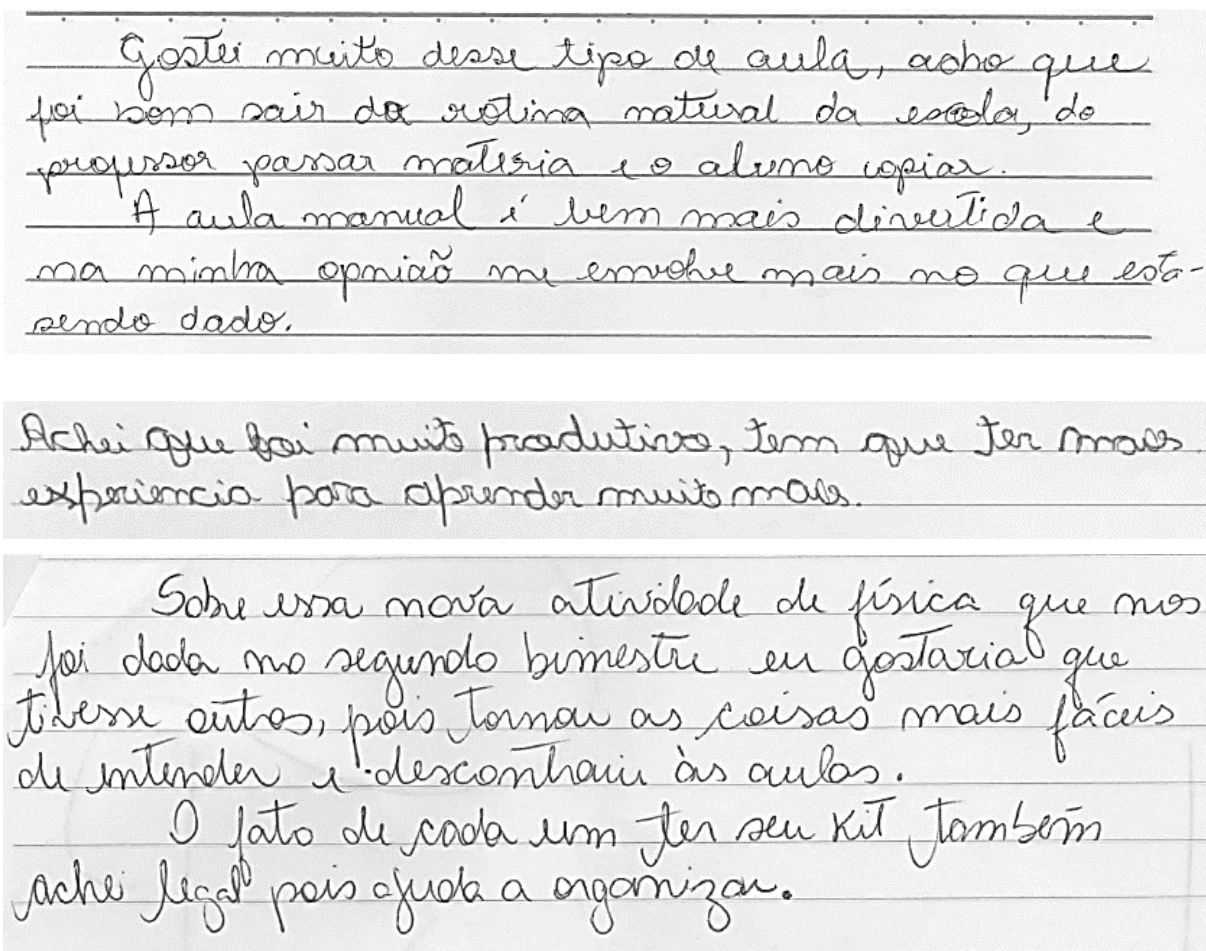 Gostei muito desse tipo de aula, acho que
foi bom sair da rotina natural da escola, do
professor passar materia e o aluno copiar.
A aula manual é bem mais divertida e
na minha opniaõ me envolve mais no que está-
sendo dado.
Achei que foi muito produtivo, tem que ter mais
experiencia para aprender muito mais.
Sobre essa nova atividade de física que nos
foi dada no segundo bimestre eu gostaria que
tivesse outros, pois tornou as coisas mais fáceis
de intender e descontraiu às aulas.
O fato de cada um ter seu kit também
achei legal pois ajuda a organizar.